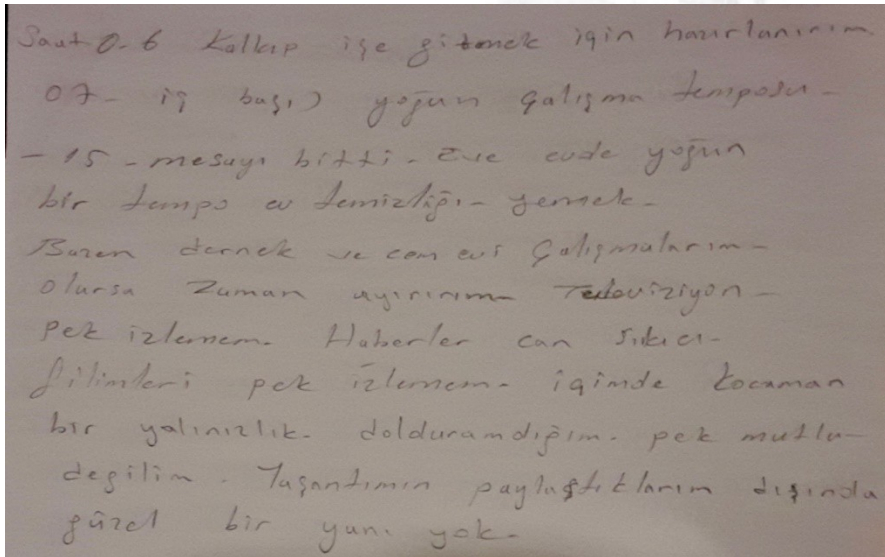 Saat 0.6 Kalkıp işe gitmek için hazırlanırım
07- iş başı) yoğun çalışma temposu-
- 15 - mesayı bitti. Eve evde yoğun
bir tempo ev temizliği- yemek-
Bazen dernek ve cem evi çalışmalarım-
olursa zaman ayırırım Televiziyon-
pek izlemem. Haberler can sıkıcı-
filimleri pek izlemem. içimde kocaman
bir yalınızlık. dolduramdığım. pek mutlu-
degilim. Yaşantımın paylaştıklarım dışında
güzel bir yanı yok.